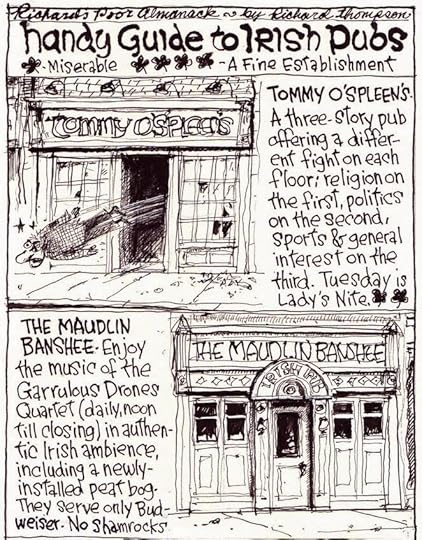 Richard's Poor Almanack ~ by Richard Thompson
Handy Guide to Irish Pubs
- Miserable - A Fine Establishment
TOMMY O'SPLEEN'S
TOMMY O'SPLEEN'S-
A three-story pub
offering a differ-
ent fight on each
floor; religion on
the first, politics
on the second,
sports & general
interest on the
third. Tuesday is
Lady's Nite.
THE MAUDLIN
BANSHEE- Enjoy
the music of the
Garrulous Drones
Quartet (daily, noon
till closing) in authen-
tic Irish ambience,
including a newly-
installed peat bog.
They serve only Bud-
weiser. No Shamrocks
THE MAUDLIN BANSHEE